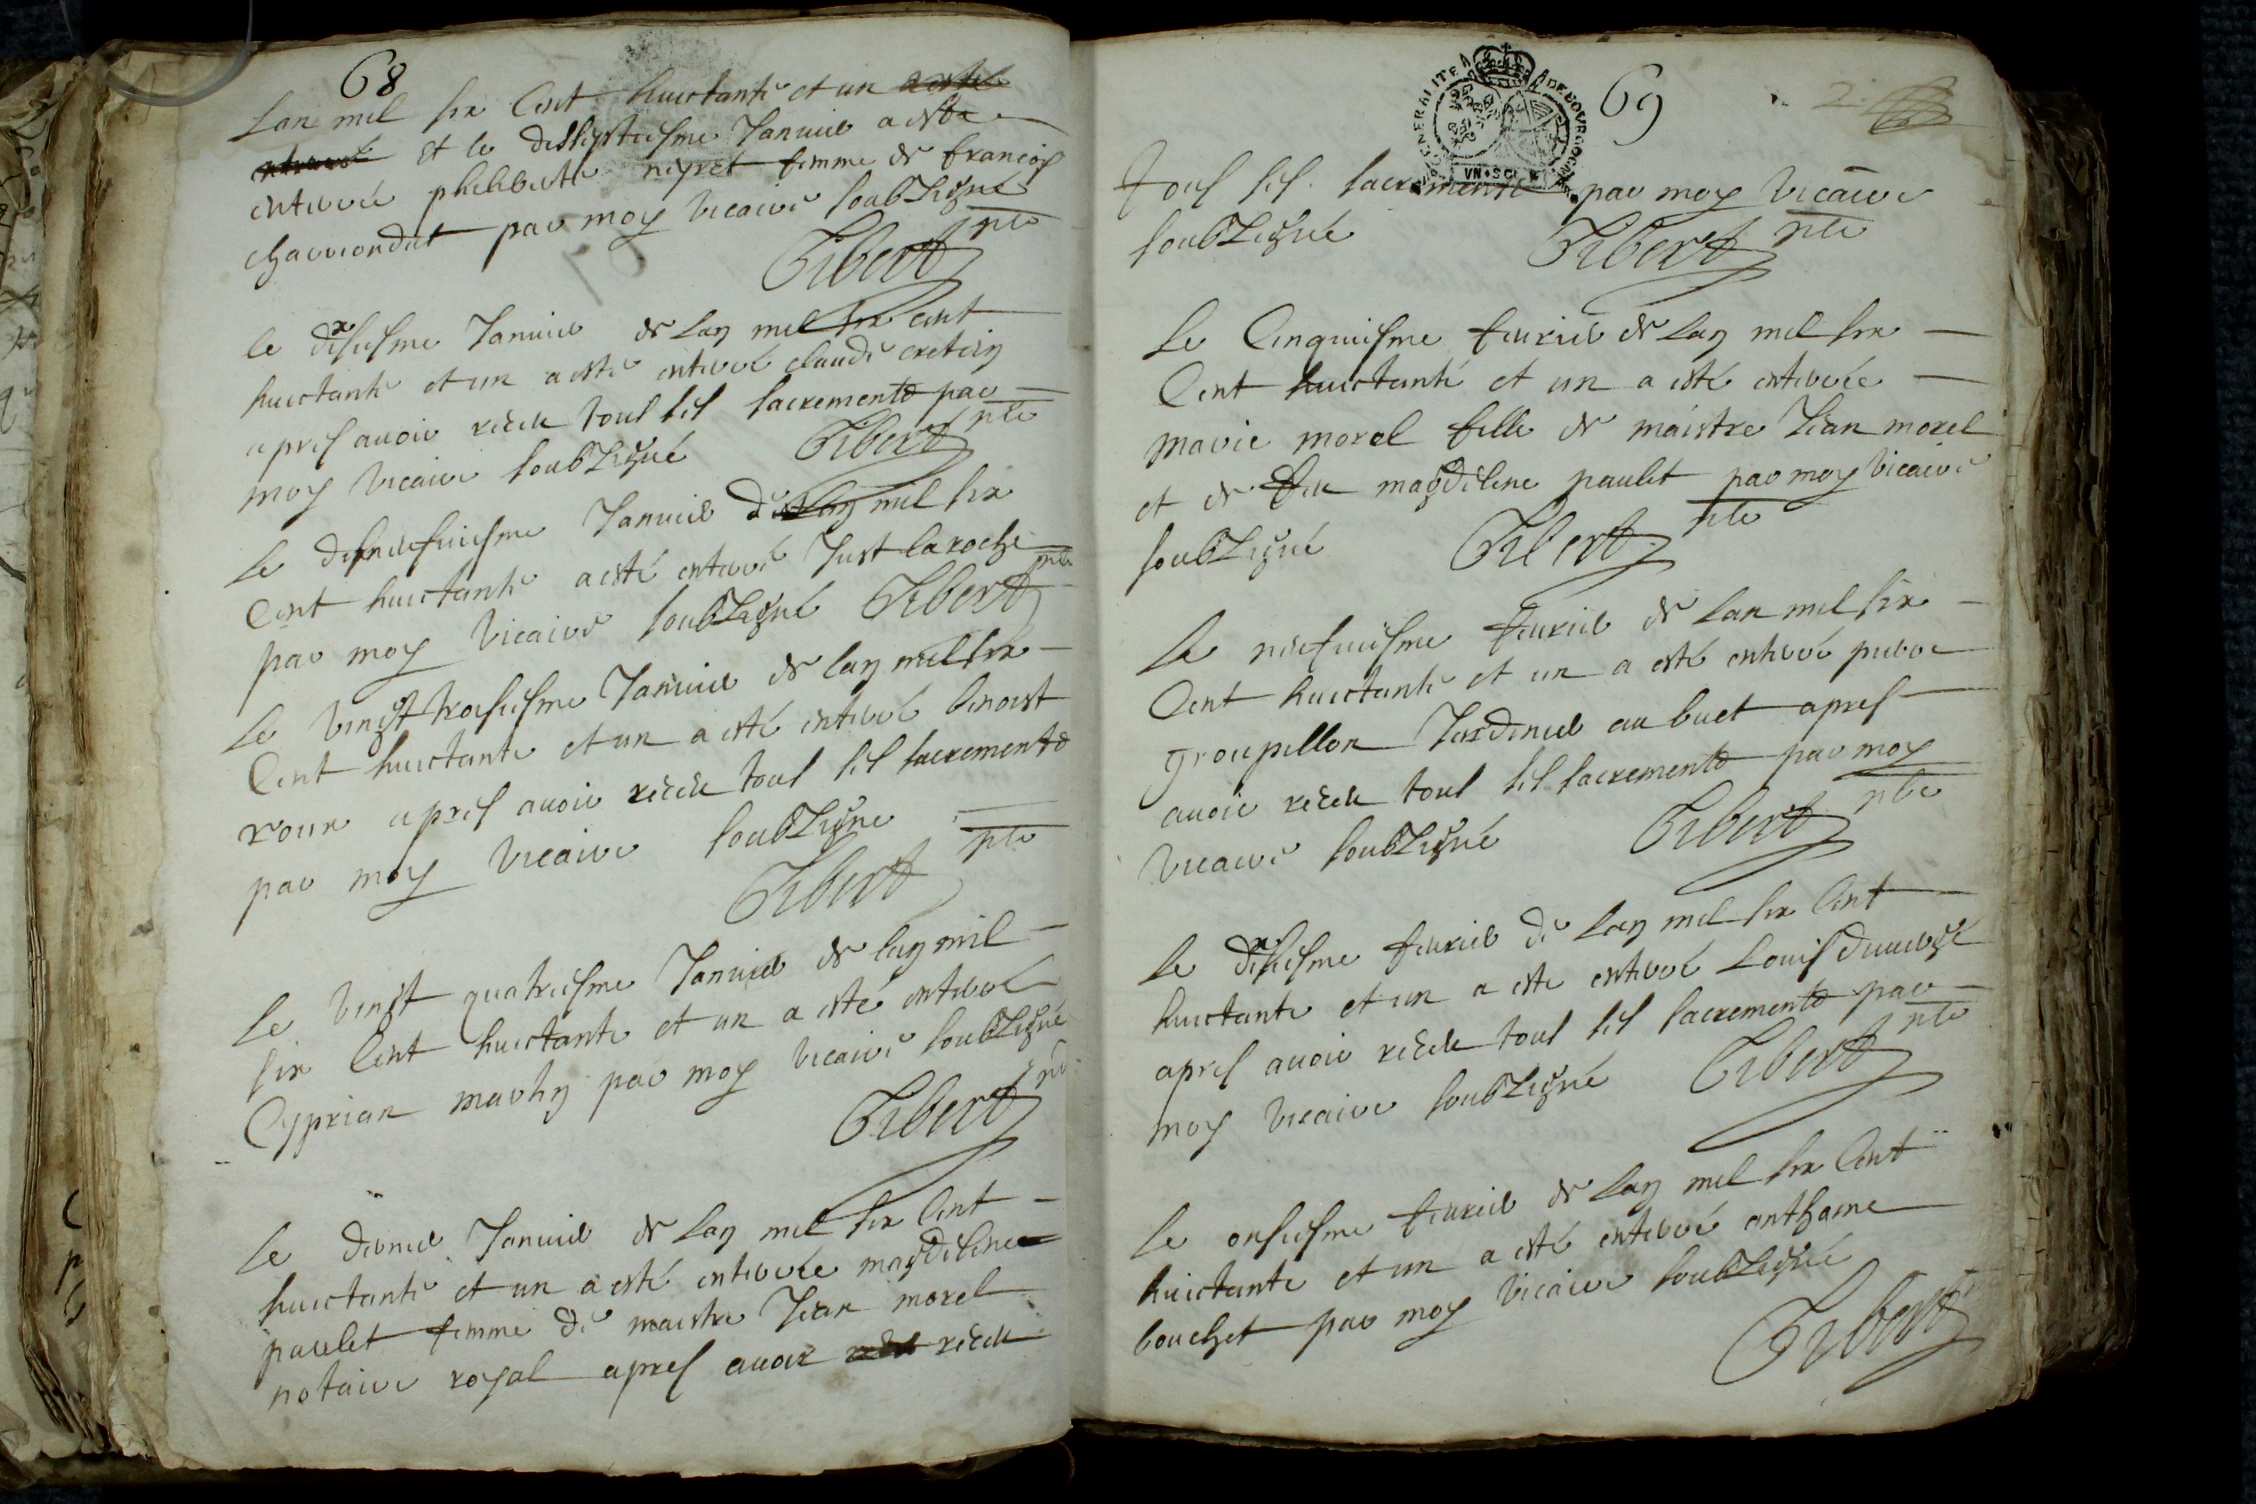 68
Lan mil six Cent huictante et un
et le dixseptiesme Janvier a esté
enterrée philiberte neyret femme de françois
charriondet par moy vicaire soubsigné
Gibert pbr
Le dixiesme Janvier de lan mil six cent
huictante et un a esté enterré claude cretiny
apres avoir receu tous les sacrements par
moy vicaire soubsigné Gibert pbr
Le dixneufuiesme Janvier de lan mil six
Cent huictante a esté enterré Just laroche
par moy vicaire soubsigné Gibert pbr
Le vingt troisiesme Janvier de lan mil six
Cent huictante et un a esté enterré benoist
roux apres avoir receu tous les sacrements
par moy vicaire soubsigné
Gibert pbr
Le vingt quatriesme Janvier de lan mil
six Cent huictante et un a esté enterré
Cyprian marhy par moy vicaire soubsigné
Gibert pbr
Le dernier Janvier de lan mil six Cent
huictante et un a esté enterrée magdeleine
paulet femme de maistre Jean morel
notaire royal apres avoir receu
69
GENERALITE DE BOURGOGNE
VN SOL
2
tous les sacrements par moy vicaire
soubsigné Gibert pbr
Le Cinquiesme feurier de lan mil six
Cent huictante et un a esté enterrée
marie morel fille de maistre Jean morel
et de feu magdeleine paulet par moy vicaire
soubsigné Gibert pbr
Le neufuiesme feurier de lan mil six
Cent huictante et un a esté enterré pierre
groupillon Jardinier au buet apres
avoir receu tous les sacrements par moy
vicaire soubsigné Gibert pbr
Le dixiesme feurier de lan mil six Cent
huictante et un a esté enterré Louis duuergé
apres avoir receu tous les sacrements par
moy vicaire soubsigné Gibert pbr
Le onsiesme feurier de lan mil six Cent
huictante et un a esté enterré anthoine
bouchet par moy vicaire soubsigné
Gibert